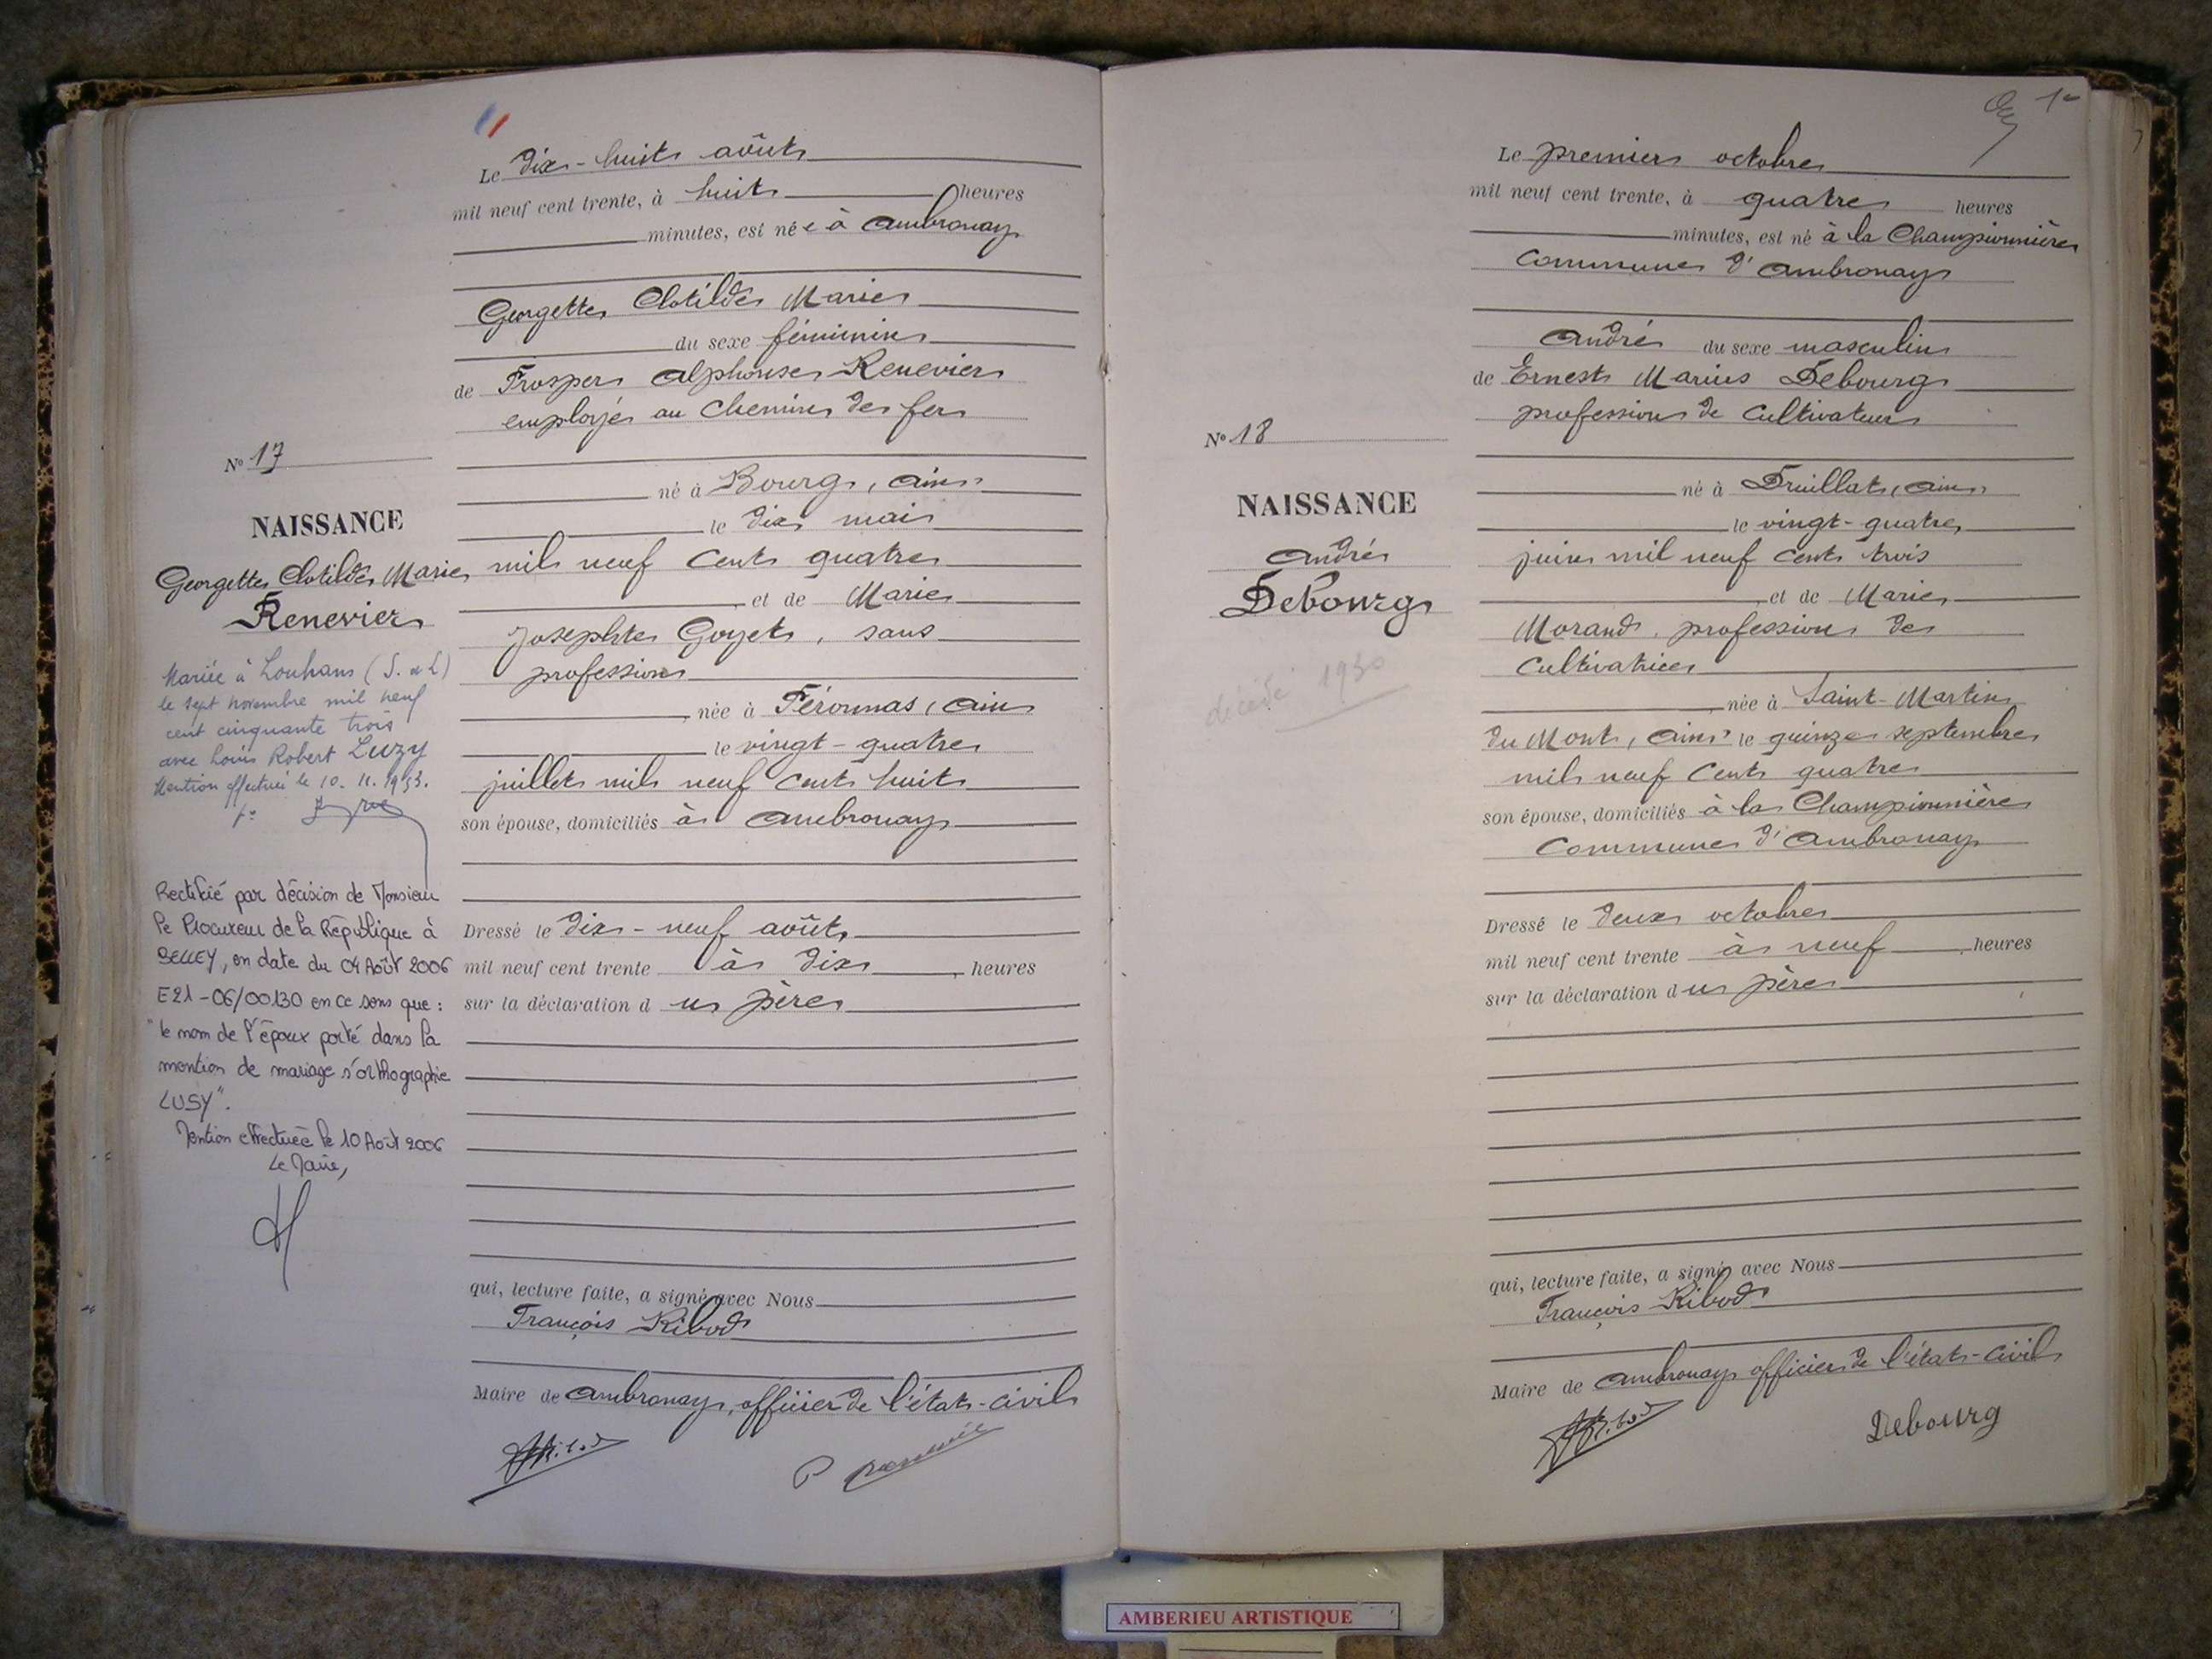 Le dix-huit août
mil neuf cent trente, à huit heures
minutes, est née à Ambronay
Georgette Clotilde Marie
du sexe féminin
de Prosper Alphonse Renevier
employé au Chemin de fer
né à Bourg, Ain
le dix mai
mil neuf cent quatre
et de Marie
Josephte Goyet, sans
profession
née à Péronnas, Ain
le vingt-quatre
juillet mil neuf cent huit
son épouse, domiciliés à Ambronay
Dressé le dix-neuf août
mil neuf cent trente à dix heures
sur la déclaration du père
qui, lecture faite, a signé avec Nous
François Ribod
Maire de Ambronay, officier de l'état-civil
N° 17
NAISSANCE
Georgette Clotilde Marie
Renevier
Mariée à Louhans (S. et L)
le sept novembre mil neuf
cent cinquante trois
avec Louis Robert Luzy
Mention effectuée le 10. 11. 1953.
Rectifié par décision de Monsieur
le Procureur de la République à
BELLEY, en date du 04 Août 2006
E21-06/00130 en ce sens que :
"le nom de l'époux porté dans la
mention de mariage s'orthographie
LUSY".
Mention effectuée le 10 Août 2006
Le Maire,
Le premier octobre
mil neuf cent trente, à quatre heures
minutes, est né à la Championnière
Commune d'Ambronay
André du sexe masculin
de Ernest Marius Debourg
profession de Cultivateur
né à Druillat, Ain
le vingt-quatre
juin mil neuf cent trois
et de Marie
Morand, profession de
Cultivatrice
née à Saint-Martin
du Mont, Ain le quinze septembre
mil neuf cent quatre
son épouse, domiciliés à la Championnière
Commune d'Ambronay
Dressé le deux octobre
mil neuf cent trente à neuf heures
sur la déclaration du père
qui, lecture faite, a signé avec Nous
François Ribod
Maire de Ambronay officier de l'état-civil
Debourg
N° 18
NAISSANCE
André
Debourg
décédé 1930
AMBERIEU ARTISTIQUE